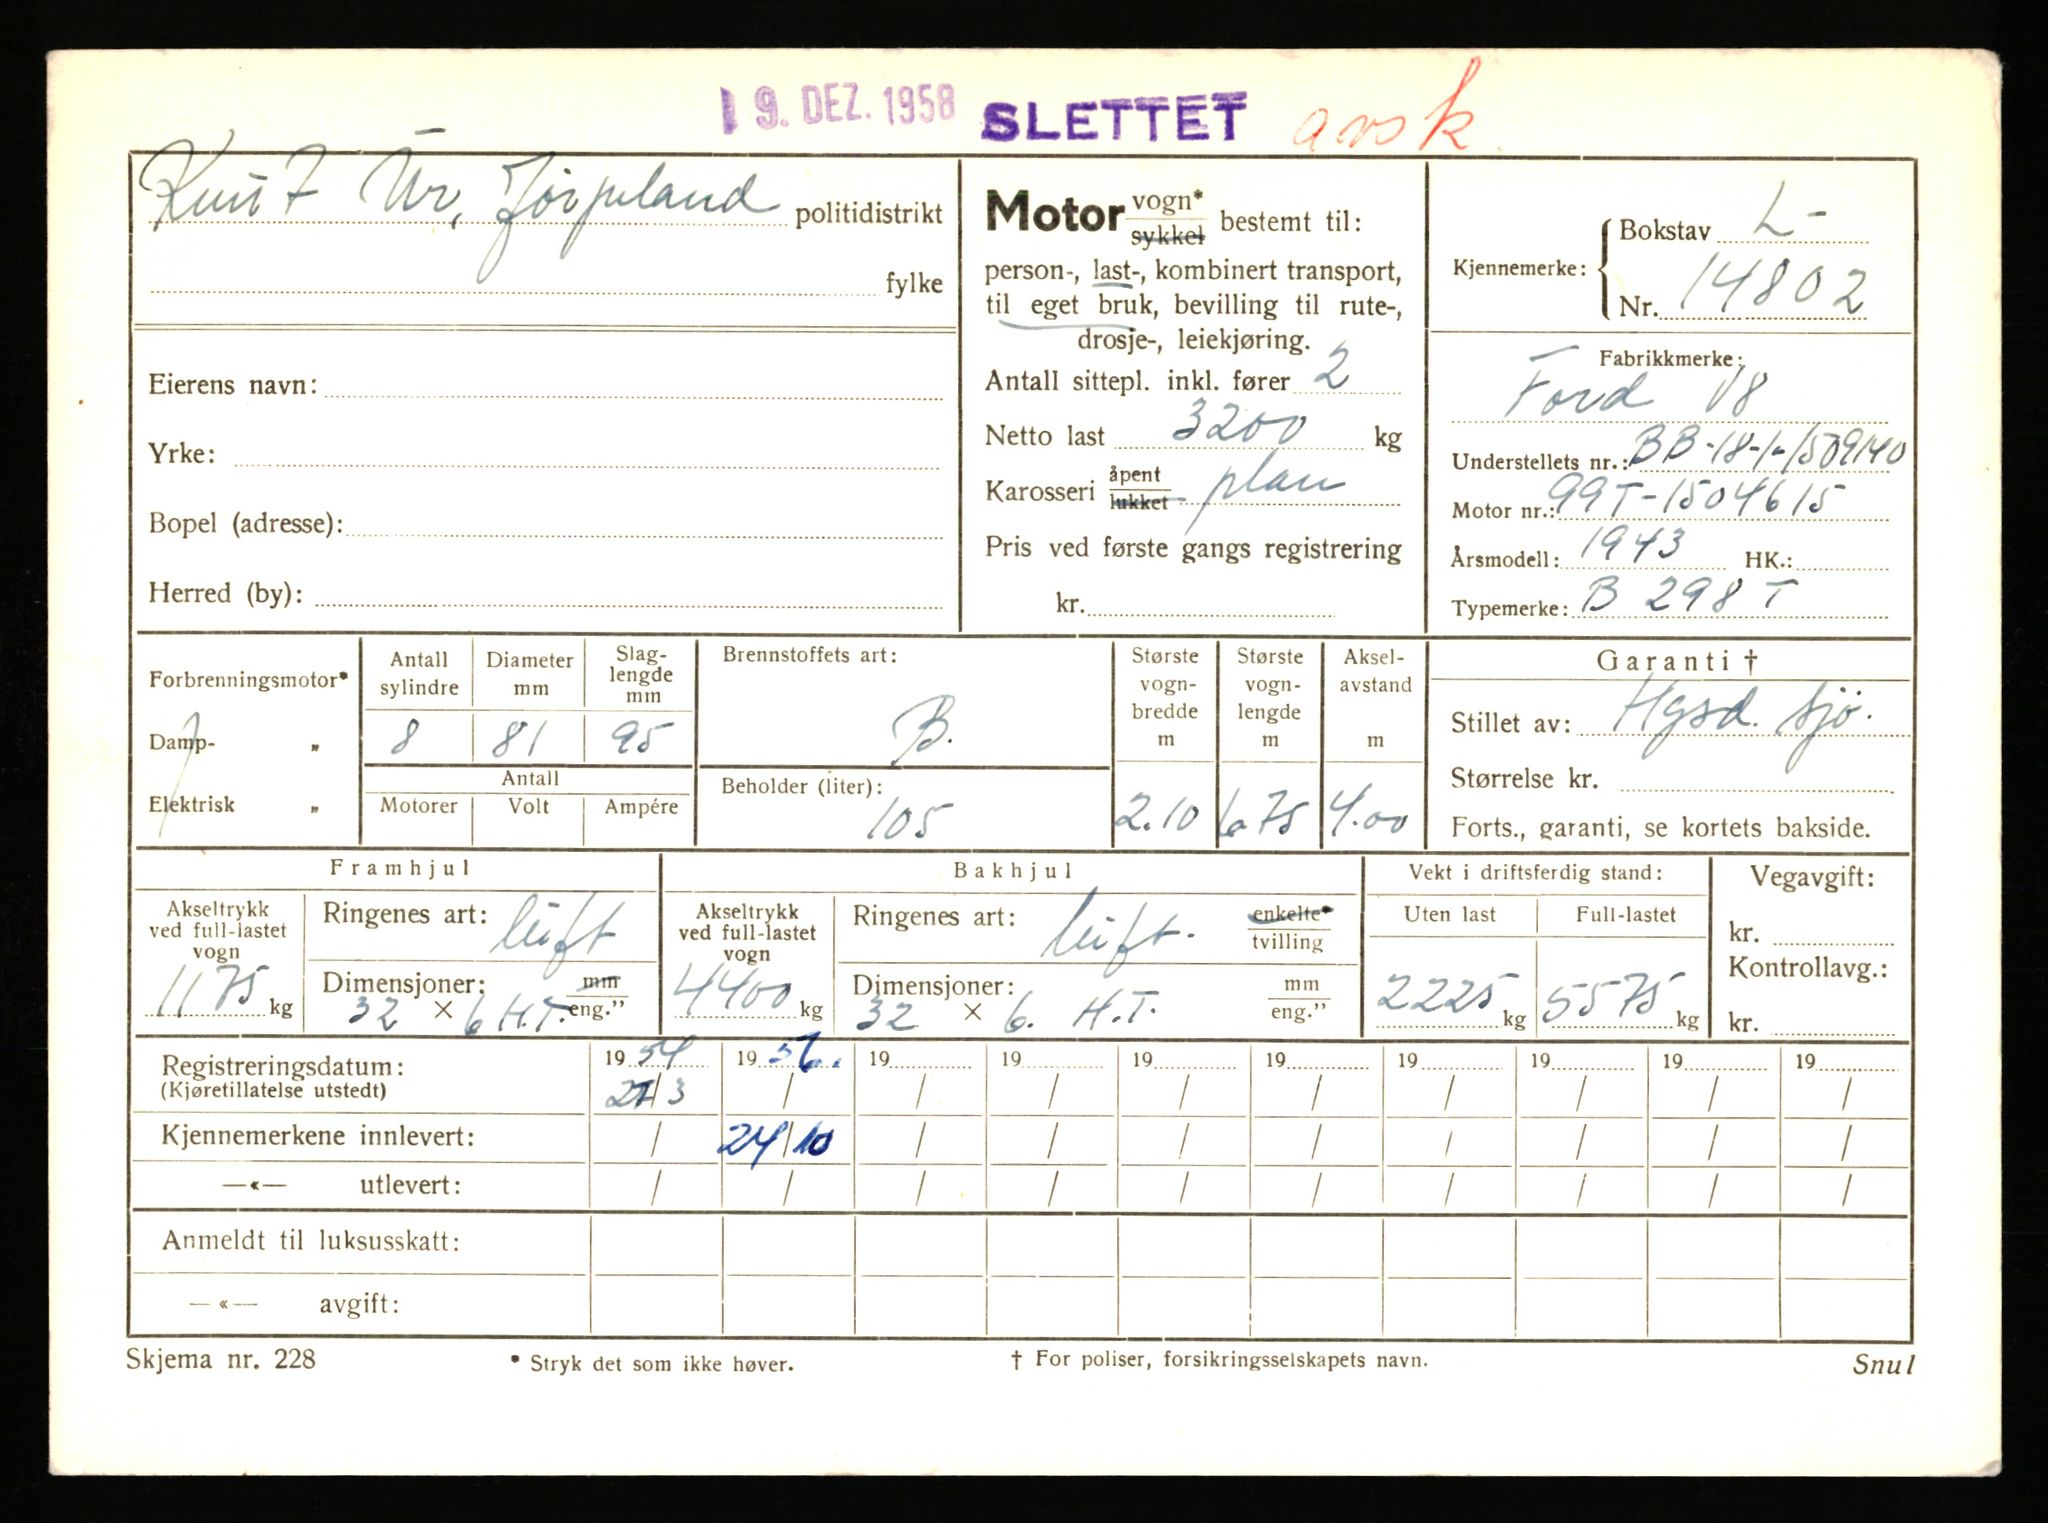 19. DEZ. 1958 SLETTET avsk.
Ur, Jørpeland politidistrikt
fylke
Eierens navn:
Yrke:
Bopel (adresse):
Herred (by):
Motor vogn* sykkel bestemt til:
person-, last-, kombinert transport,
til eget bruk, bevilling til rute-,
drosje-, leiekjøring.
Antall sittepl. inkl. fører 2
Netto last 3200 kg
Karosseri åpent lukket plan
Pris ved første gangs registrering
kr.
Kjennemerke: Bokstav L-
Nr. 14802
Fabrikkmerke:
Ford V8
Understellets nr.: BB-18-1-1509140
Motor nr.: 99T-1504615
Årsmodell: 1943 HK.:
Typemerke: B 298 T
Forbrenningsmotor*
Damp- „
Elektrisk „
Antall sylindre Diameter mm Slag-lengde mm
8 81 95
Antall
Motorer Volt Ampére
Brennstoffets art:
B.
Beholder (liter):
105
Største vogn-bredde m Største vogn-lengde m Aksel-avstand m
2.10 6.75 4.00
Garanti †
Stillet av: Hgsd. Sjø.
Størrelse kr.
Forts., garanti, se kortets bakside.
Framhjul
Akseltrykk ved full-lastet vogn
1175 kg
Ringenes art: luft
Dimensjoner: mm eng."
32 × 6 H.T.
Bakhjul
Akseltrykk ved full-lastet vogn
4400 kg
Ringenes art: luft. enkelte* tvilling
Dimensjoner: mm eng."
32 × 6. H.T.
Vekt i driftsferdig stand:
Uten last Full-lastet
2225 kg 5575 kg
Vegavgift:
kr.
Kontrollavg.:
kr.
Registreringsdatum: 1954 1956. 19 19 19 19 19 19 19 19
(Kjøretillatelse utstedt) 27/3 / / / / / / / / /
Kjennemerkene innlevert: / 24/10 / / / / / / / /
—«— utlevert: / / / / / / / / / /
Anmeldt til luksusskatt:
—«— avgift:
Skjema nr. 228 * Stryk det som ikke høver. † For poliser, forsikringsselskapets navn. Snul